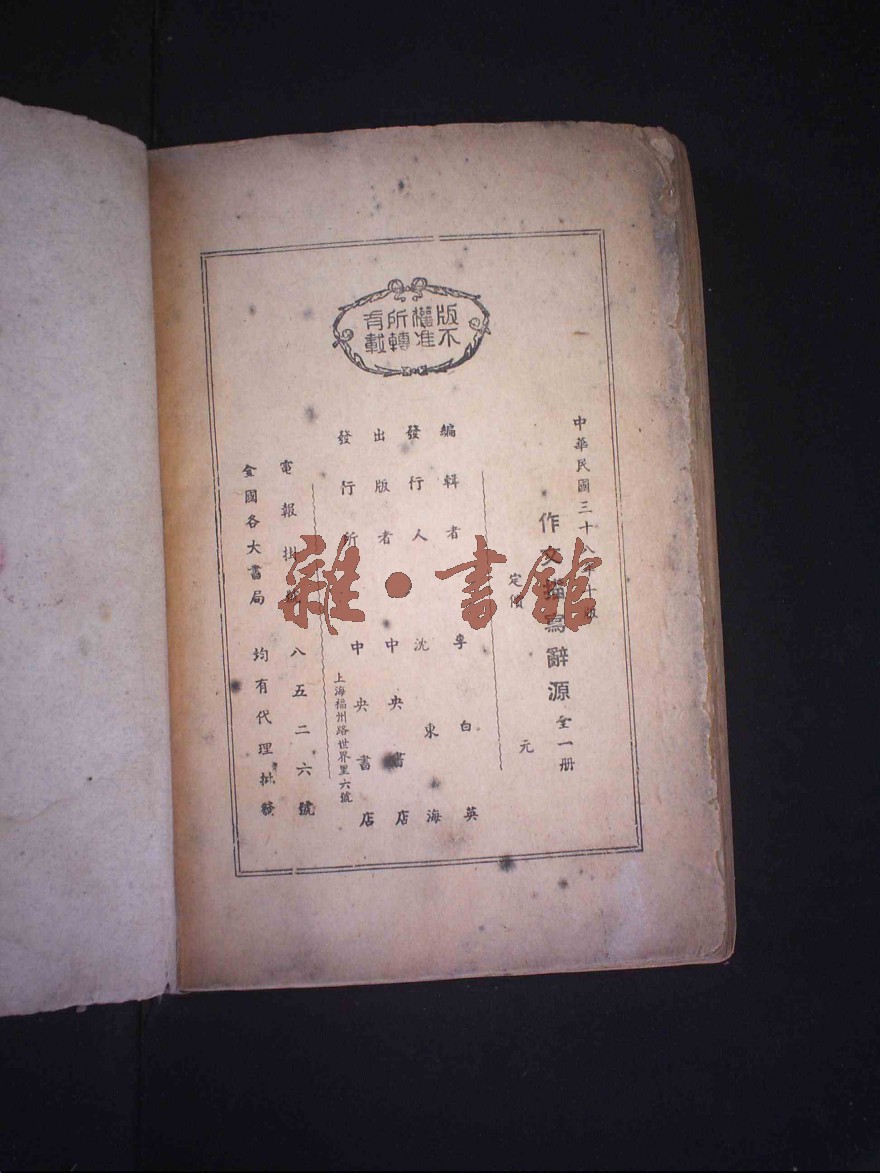 版權所有
不准轉載
中華民國三十八年十版
作文描寫辭源 全一册
定價 元
編輯者 李白英
發行人 沈東海
出版者 中央書店
發行所 中央書店
上海福州路世界里六號
電報掛號 八五二六號
全國各大書局 均有代理批發
雜·書館